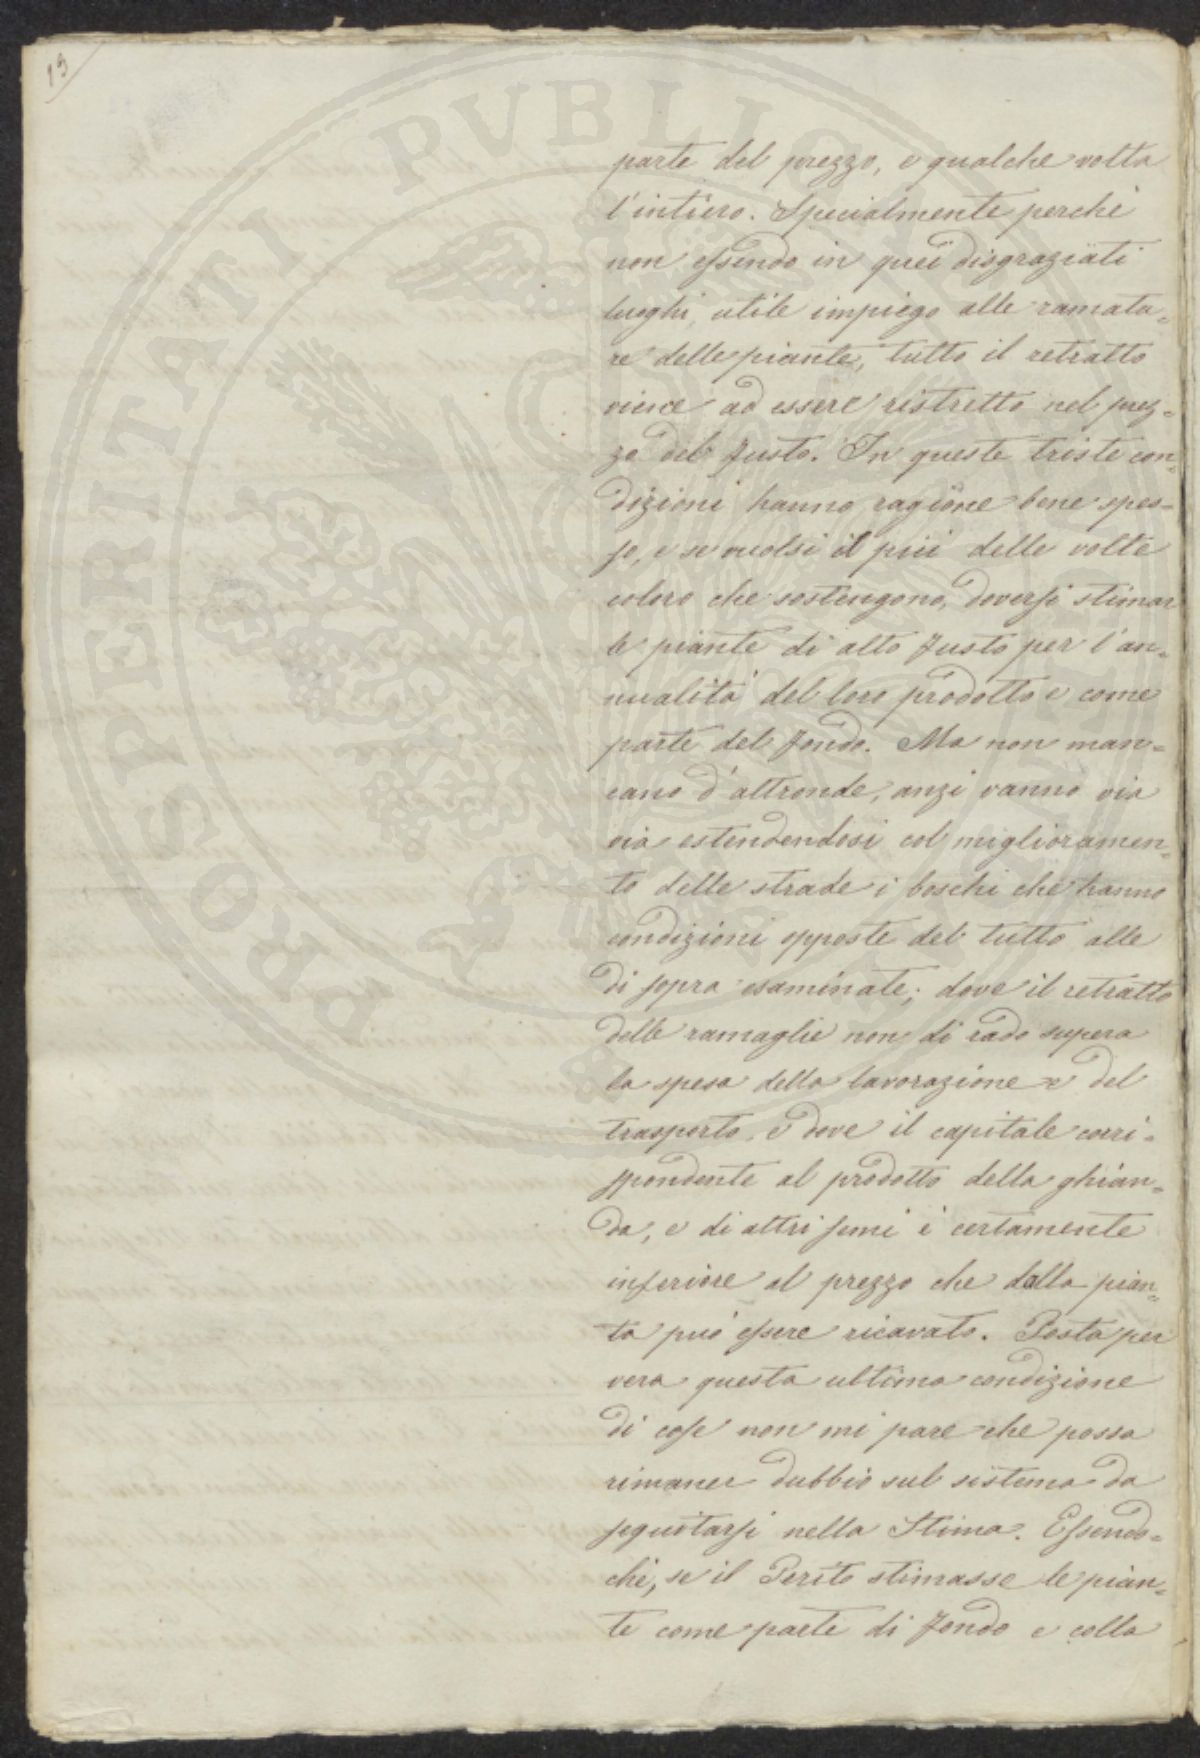 19
parte del prezzo, e qualche volta
l'intiero. Specialmente perchè
non essendo in quei disgraziati
luoghi, utile impiego alle ramatu=
re delle piante, tutto il retratto
viene ad essere ristretto nel prez=
zo del fusto. In queste triste con=
dizioni hanno ragione bene spes=
so, e se vuolsi il più delle volte
coloro che sostengono, doversi stimar
le piante di alto fusto per l'an=
nualità del loro prodotto e come
parte del fondo. Ma non man=
cano d'altronde, anzi vanno via
via estendendosi col miglioramen=
to delle strade i boschi che hanno
condizioni opposte del tutto alle
di sopra esaminate; dove il retratto
delle ramaglie non di rado supera
la spesa della lavorazione e del
trasporto, e dove il capitale corri=
spondente al prodotto della ghian=
da, e di altri semi è certamente
inferiore al prezzo che dalla pian=
ta può essere ricavato. Posta per
vera questa ultima condizione
di cose non mi pare che possa
rimaner dubbio sul sistema da
seguitarsi nella Stima. Essendo=
chè, se il Perito stimasse le pian=
te come parte di fondo e colla
PROSPERITATI PVBLICAE